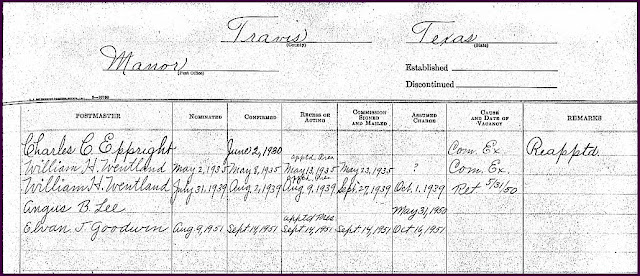 Travis Texas
(County) (State)
Manor Established
(Post Office) Discontinued
POSTMASTER NOMINATED CONFIRMED RECESS OR ACTING COMMISSION SIGNED AND MAILED ASSUMED CHARGE CAUSE AND DATE OF VACANCY REMARKS
Charles C. Eppright June 2, 1930 Com. Ex. Reapptd.
appted Pres
William H. Wentland May 2, 1935 May 8, 1935 May 13, 1935 May 23, 1935 ? Com. Ex.
William H. Wentland July 31, 1939 Aug 2, 1939 Aug 9, 1939 Sept 27, 1939 Oct. 1, 1939 Ret 5/31/50
Angus B. Lee May 31, 1950
apptd Pres
Elvan J. Goodwin Aug 9, 1951 Sept 14, 1951 Sept 14, 1951 Sept 14, 1951 Oct 16, 1951